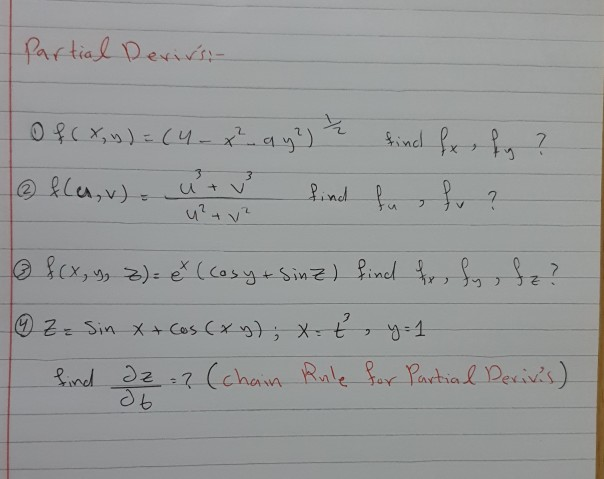 Partial Deriv's:-
① f(x,y) = (4 - x² - 9y²)^½ find fx, fy ?
② f(u,v) = (u³ + v³)/(u² + v²) find fu, fv ?
③ f(x, y, z) = eˣ (cosy + sinz) find fx, fy, fz ?
④ z = sin x + cos(xy); x = t³, y = 1
find ∂z/∂t = ? (chain Rule for Partial Deriv's)